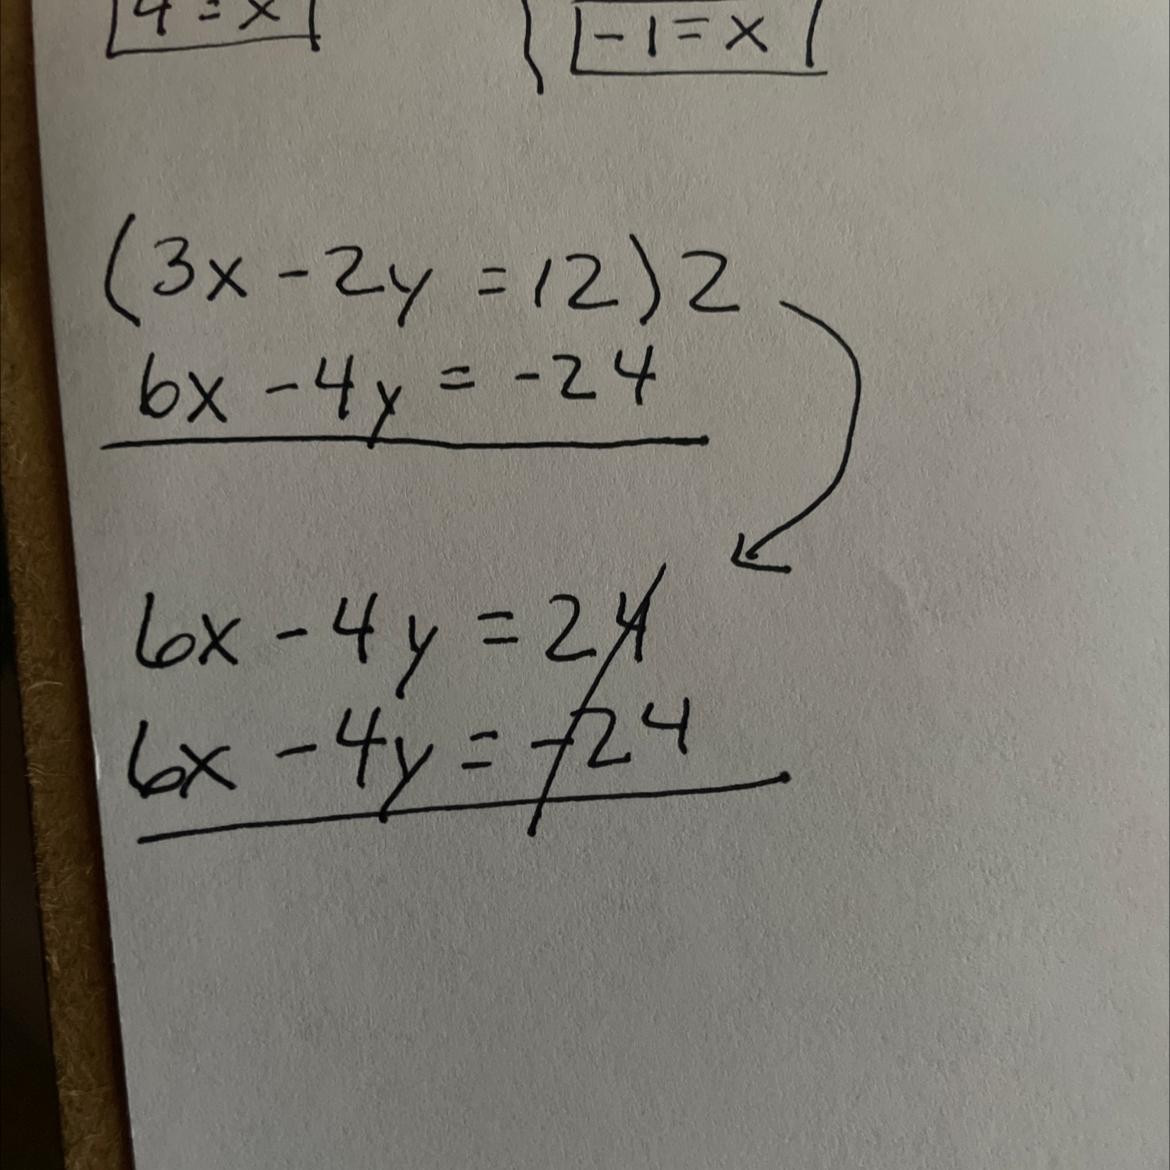 4 = x
-1 = x
(3x - 2y = 12) 2
6x - 4y = -24
6x - 4y = 24
6x - 4y = -24